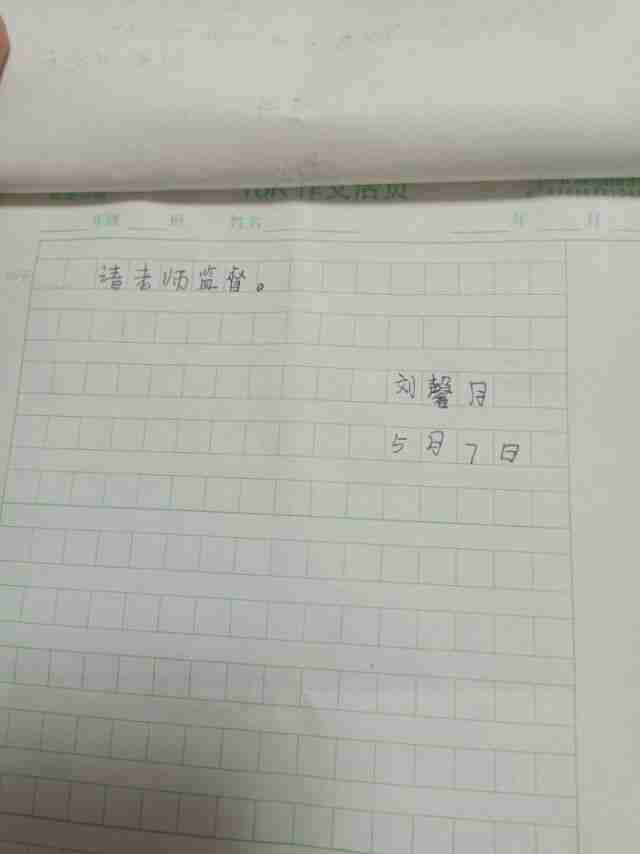 作文活页
年级 班 姓名 年 月
请老师监督。
刘馨月
5月7日